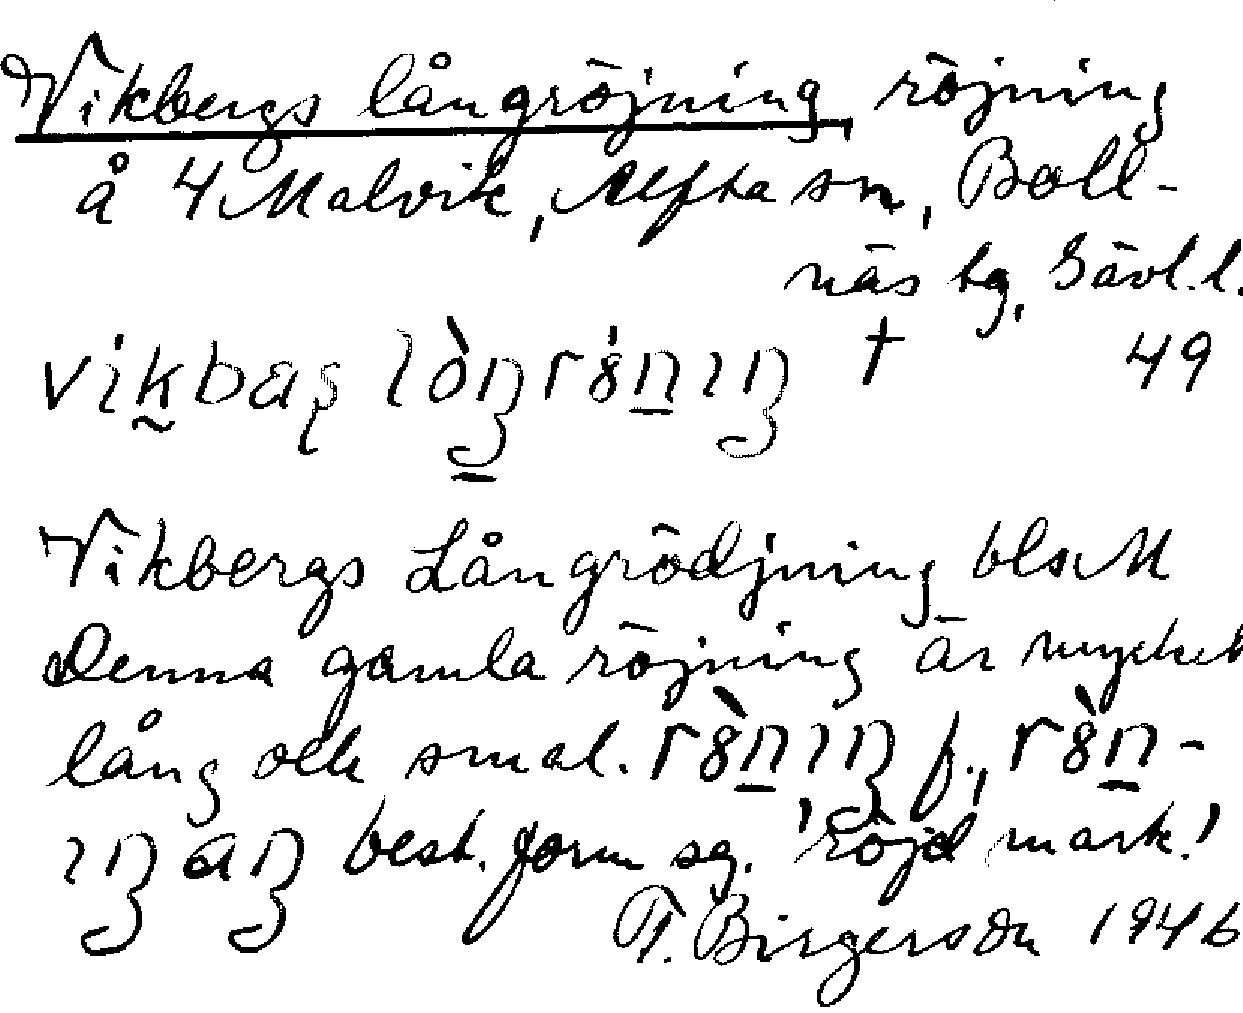 Vikbergs långröjning, röjning
å 4 Malvik, Alfta sn, Boll-
näs tg, Gävl.l.
† 49
Vikbergs Långrödjning bls M
Denna gamla röjning är mycket
lång och smal. f.,
best. form sg. 'röjd mark.'
F. Birgerson 1946